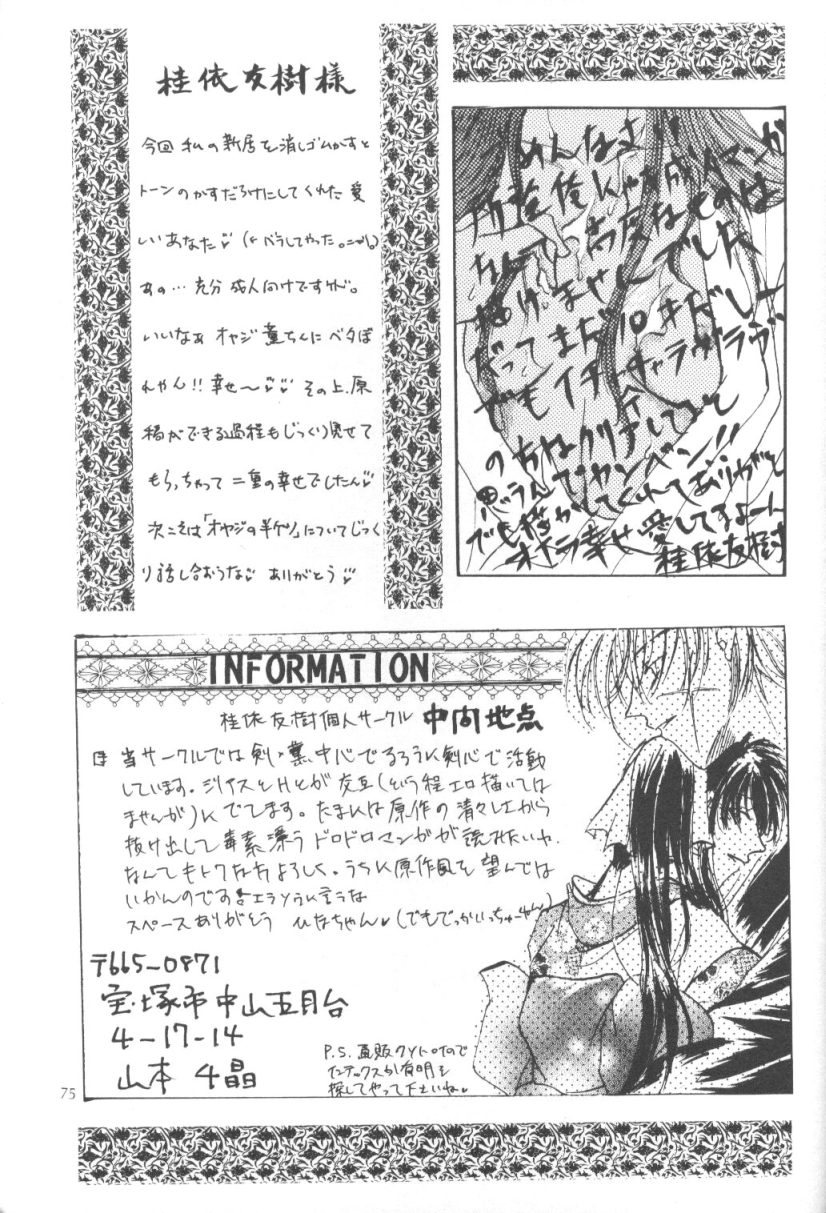 桂依友樹様
今回 私の新居を消しゴムかすと
トーンのかすだらけにしてくれた 愛
しいあなた♡
あの… 充分 成人向けですけど。
いいなぁ オヤジ 薫ちんに ベタぼ
れやん!! 幸せ〜♡♡ その上、原
稿ができる過程もじっくり見せて
もらっちゃって 二重の幸せでしたん♡
次こそは「オヤジの半ケツ」についてじっく
り話し合おうな♡ ありがとう♡
ごめんなさい
所詮俺にゃ成人マンガ
なんて高度なものは
描けませんでした
だってまだ10才だしー
でもイチャイチャラヴラヴ
でも描かしてくれてありがとう
オイラ幸せ 愛してるよーん
桂依友樹
INFORMATION
桂依友樹個人サークル 中間地点
当サークルでは剣×薫中心でるろうに剣心で活動
しています。シリアスとHとが交互(という程エロ描いては
ませんが)に でてます。たまには原作の清々しさから
抜け出して毒素漂うドロドロマンガが読みたいわ
なんてもトクな方よろしく。うちに原作風を望んでは
いかんのです
スペースありがとう ひなちゃん♡(でもでっかいっちゅーねん)
〒665-0871
宝塚市中山五月台
4-17-14
山本 千晶
P.S. 通販
インデックスか有明を
探してやって下さいね♡
75